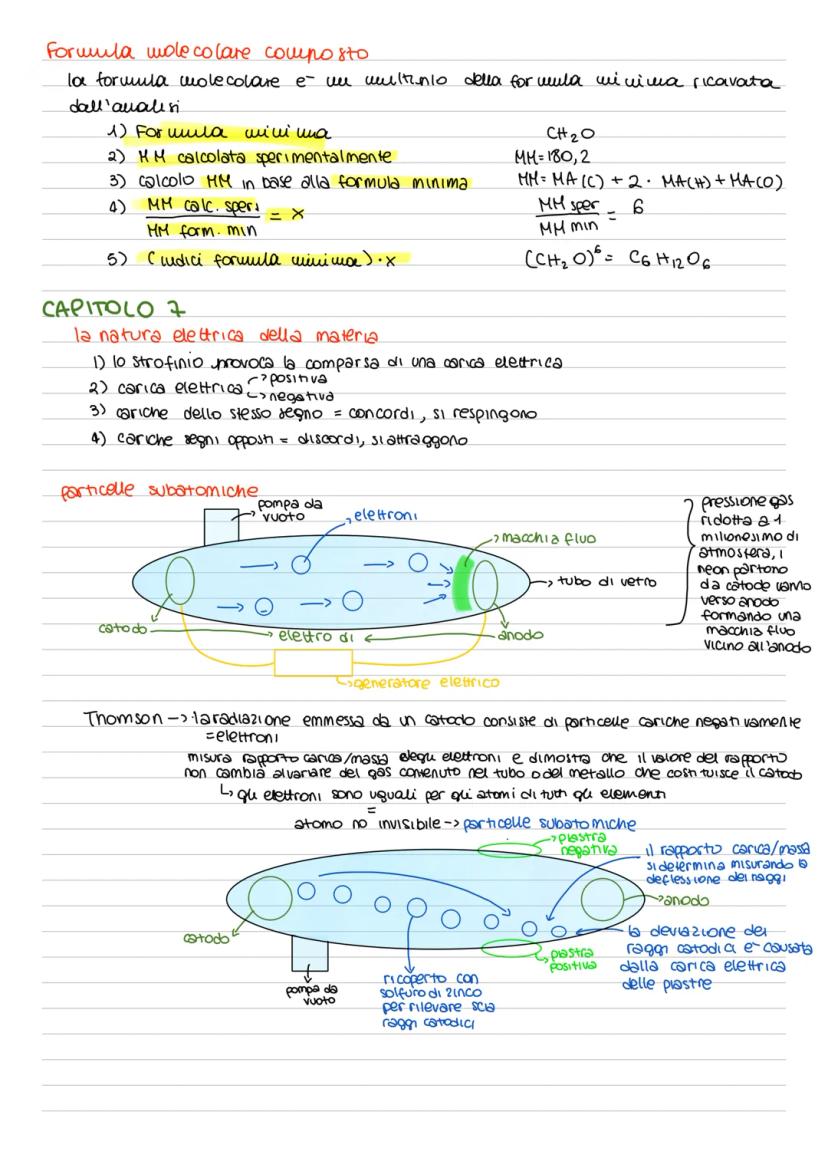 Formula molecolare composto
la formula molecolare e- un multiplo della formula minima ricavata
dall'analisi
1) Formula minima CH2O
2) MM calcolata sperimentalmente MM=180,2
3) calcolo MM in base alla formula minima MM= MA(C) + 2 · MA(H) + MA(O)
4) MM calc. speri / MM form. min = x MM sper / MM min = 6
5) (indici formula minima)·x (CH2O)⁶ = C6H12O6
CAPITOLO 7
la natura elettrica della materia
1) lo strofinio provoca la comparsa di una carica elettrica
2) carica elettrica -> positiva
-> negativa
3) cariche dello stesso segno = concordi, si respingono
4) cariche segni opposti = discordi, si attraggono
particelle subatomiche
pompa da
vuoto
elettroni
macchia fluo
tubo di vetro
catodo
elettrodi
anodo
generatore elettrico
pressione gas
ridotta a 1
milionesimo di
atmosfera, i
neon partono
da catode vanno
verso anodo
formando una
macchia fluo
vicino all'anodo
Thomson -> la radiazione emmessa da un catodo consiste di particelle cariche negativamente
= elettroni
misura rapporto carica/massa degli elettroni e dimostra che il valore del rapporto
non cambia al variare del gas contenuto nel tubo o del metallo che costituisce il catodo
↳ gli elettroni sono uguali per gli atomi di tutti gli elementi
=
atomo no invisibile -> particelle subatomiche
piastra
negativa
il rapporto carica/massa
si determina misurando la
deflessione dei raggi
anodo
catodo
pompa da
vuoto
ricoperto con
solfuro di zinco
per rilevare scia
raggi catodici
piastra
positiva
la deviazione dei
raggi catodici e- causata
dalla carica elettrica
delle piastre